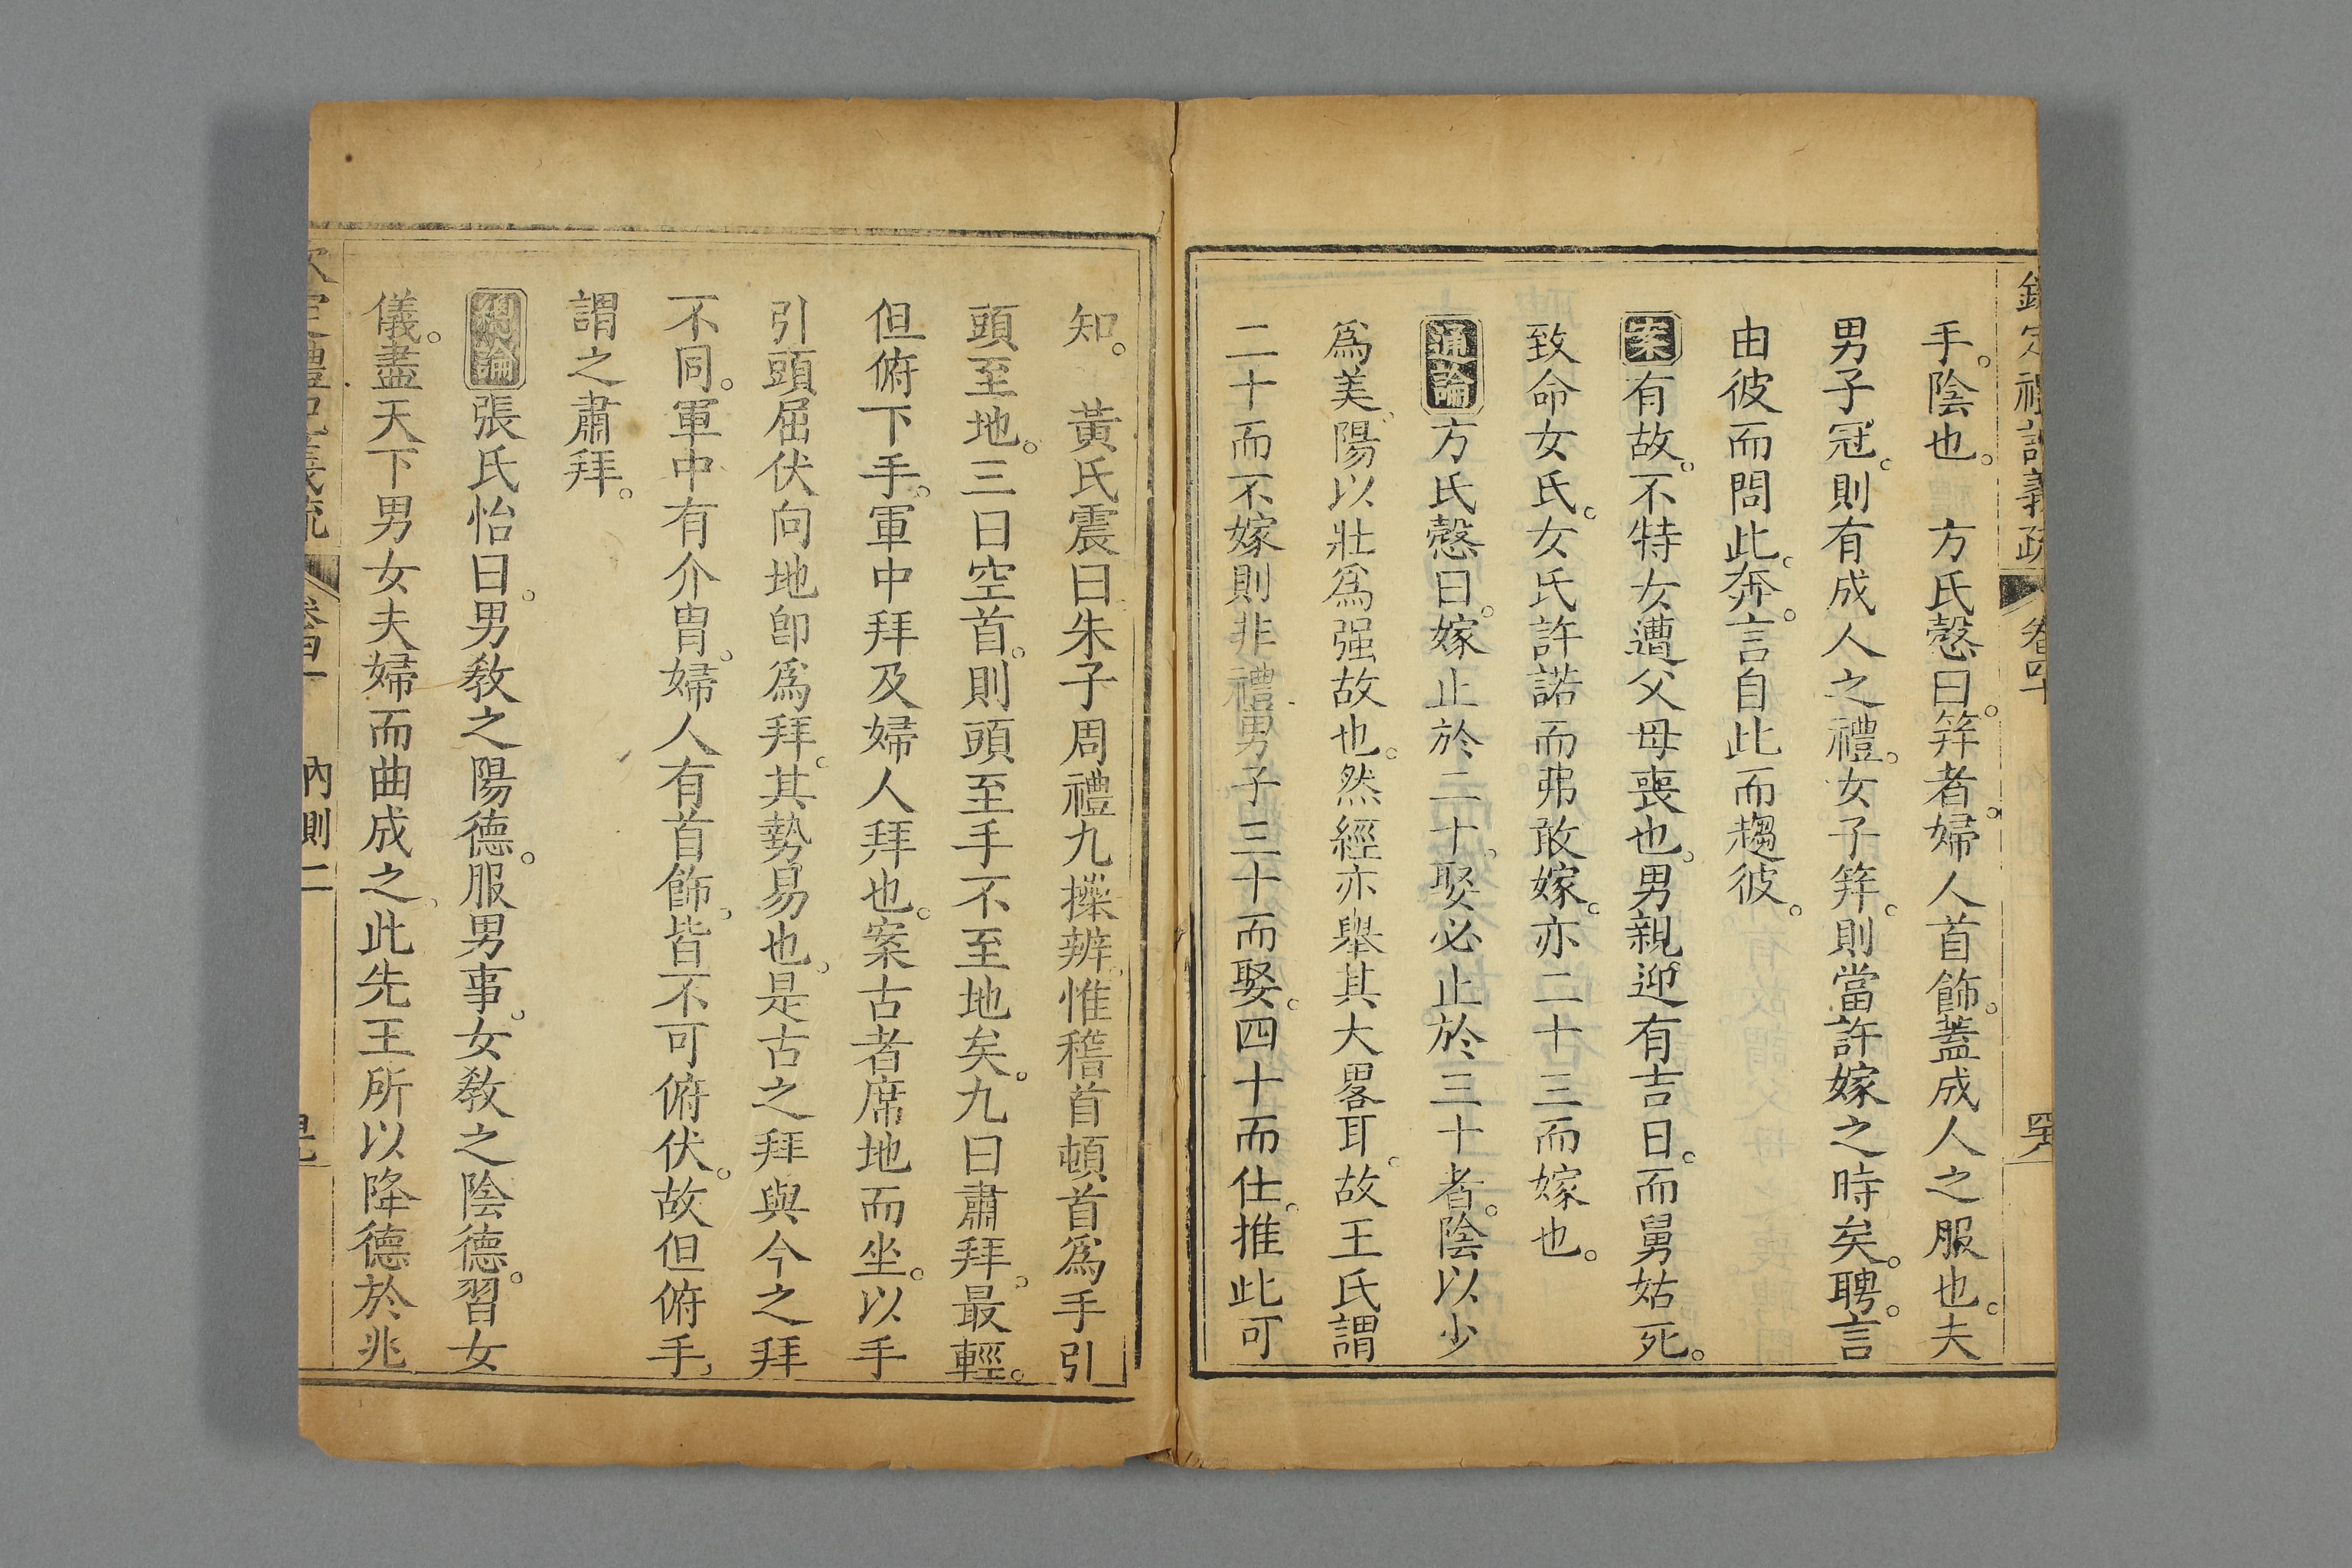 欽定禮記義疏 卷四十
手。陰也。 方氏慤曰。笄者。婦人首飾。蓋成人之服也。夫
男子冠。則有成人之禮。女子笄。則當許嫁之時矣。聘。言
由彼而問此。奔。言自此而趨彼。
案有故。不特女遭父母喪也。男親迎有吉日。而舅姑死。
致命女氏。女氏許諾而弗敢嫁。亦二十三而嫁也。
通論方氏慤曰。嫁止於二十。娶必止於三十者。陰以少
爲美、陽以壯爲强故也。然經亦舉其大畧耳。故王氏謂
二十而不嫁則非禮男子三十而娶。四十而仕。推此可
知。 黃氏震曰朱子周禮九𢷎辨、惟稽首頓首爲手引
頭至地。三曰空首。則頭至手不至地矣。九曰肅拜。最輕。
但俯下手。軍中拜及婦人拜也。案古者席地而坐。以手
引頭屈伏向地卽爲拜。其勢易也。是古之拜與今之拜
不同。軍中有介冑。婦人有首飾。皆不可俯伏。故但俯手、
謂之肅拜。
總論張氏怡曰。男敎之陽德。服男事。女敎之陰德。習女
儀。盡天下男女夫婦而曲成之、此先王所以降德於兆
欽定禮記義疏 內則二